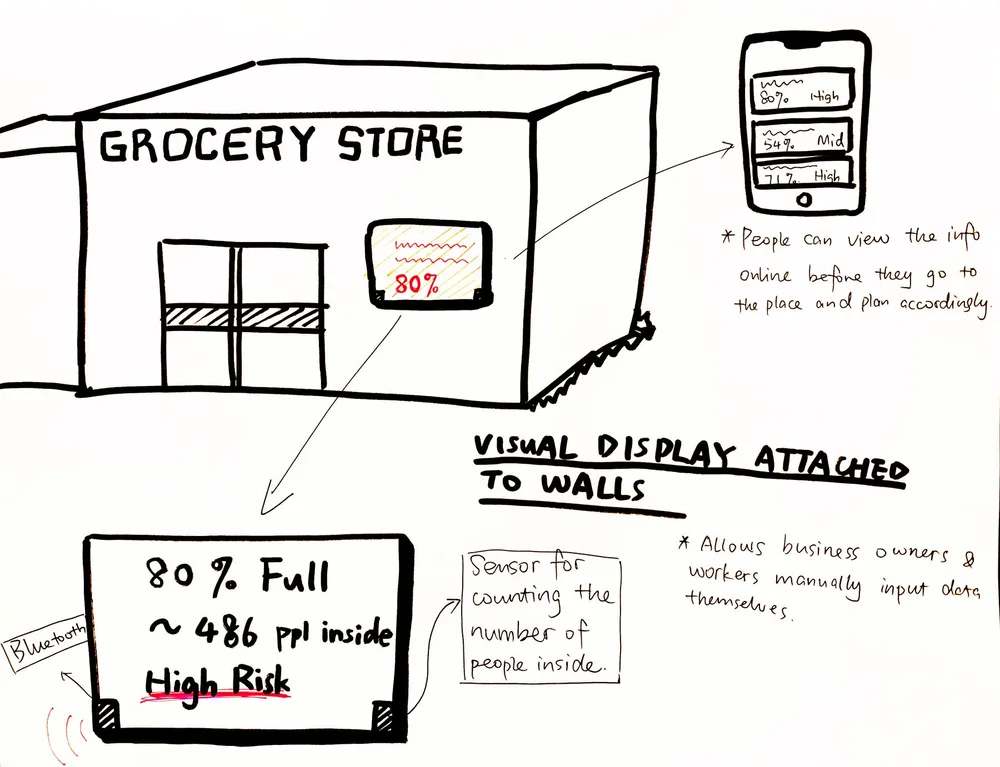 GROCERY STORE
80%
80% High
54% Mid
71% High
* People can view the info
online before they go to
the place and plan accordingly.
VISUAL DISPLAY ATTACHED
TO WALLS
* Allows business owners &
workers manually input data
themselves.
80% Full
~ 486 ppl inside
High Risk
Bluetooth
Sensor for
counting the
number of
people inside.